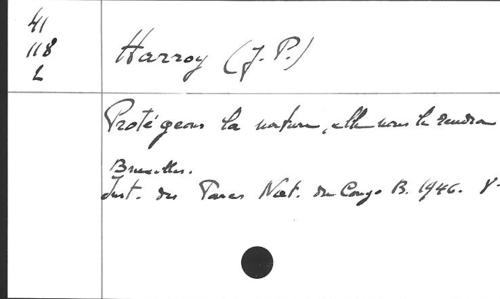 41
118
L
Harroy (J. P.)
Protégeons la nature, elle nous le rendra
Bruxelles.
Inst. des Parcs Nat. du Congo B. 1946. 8°